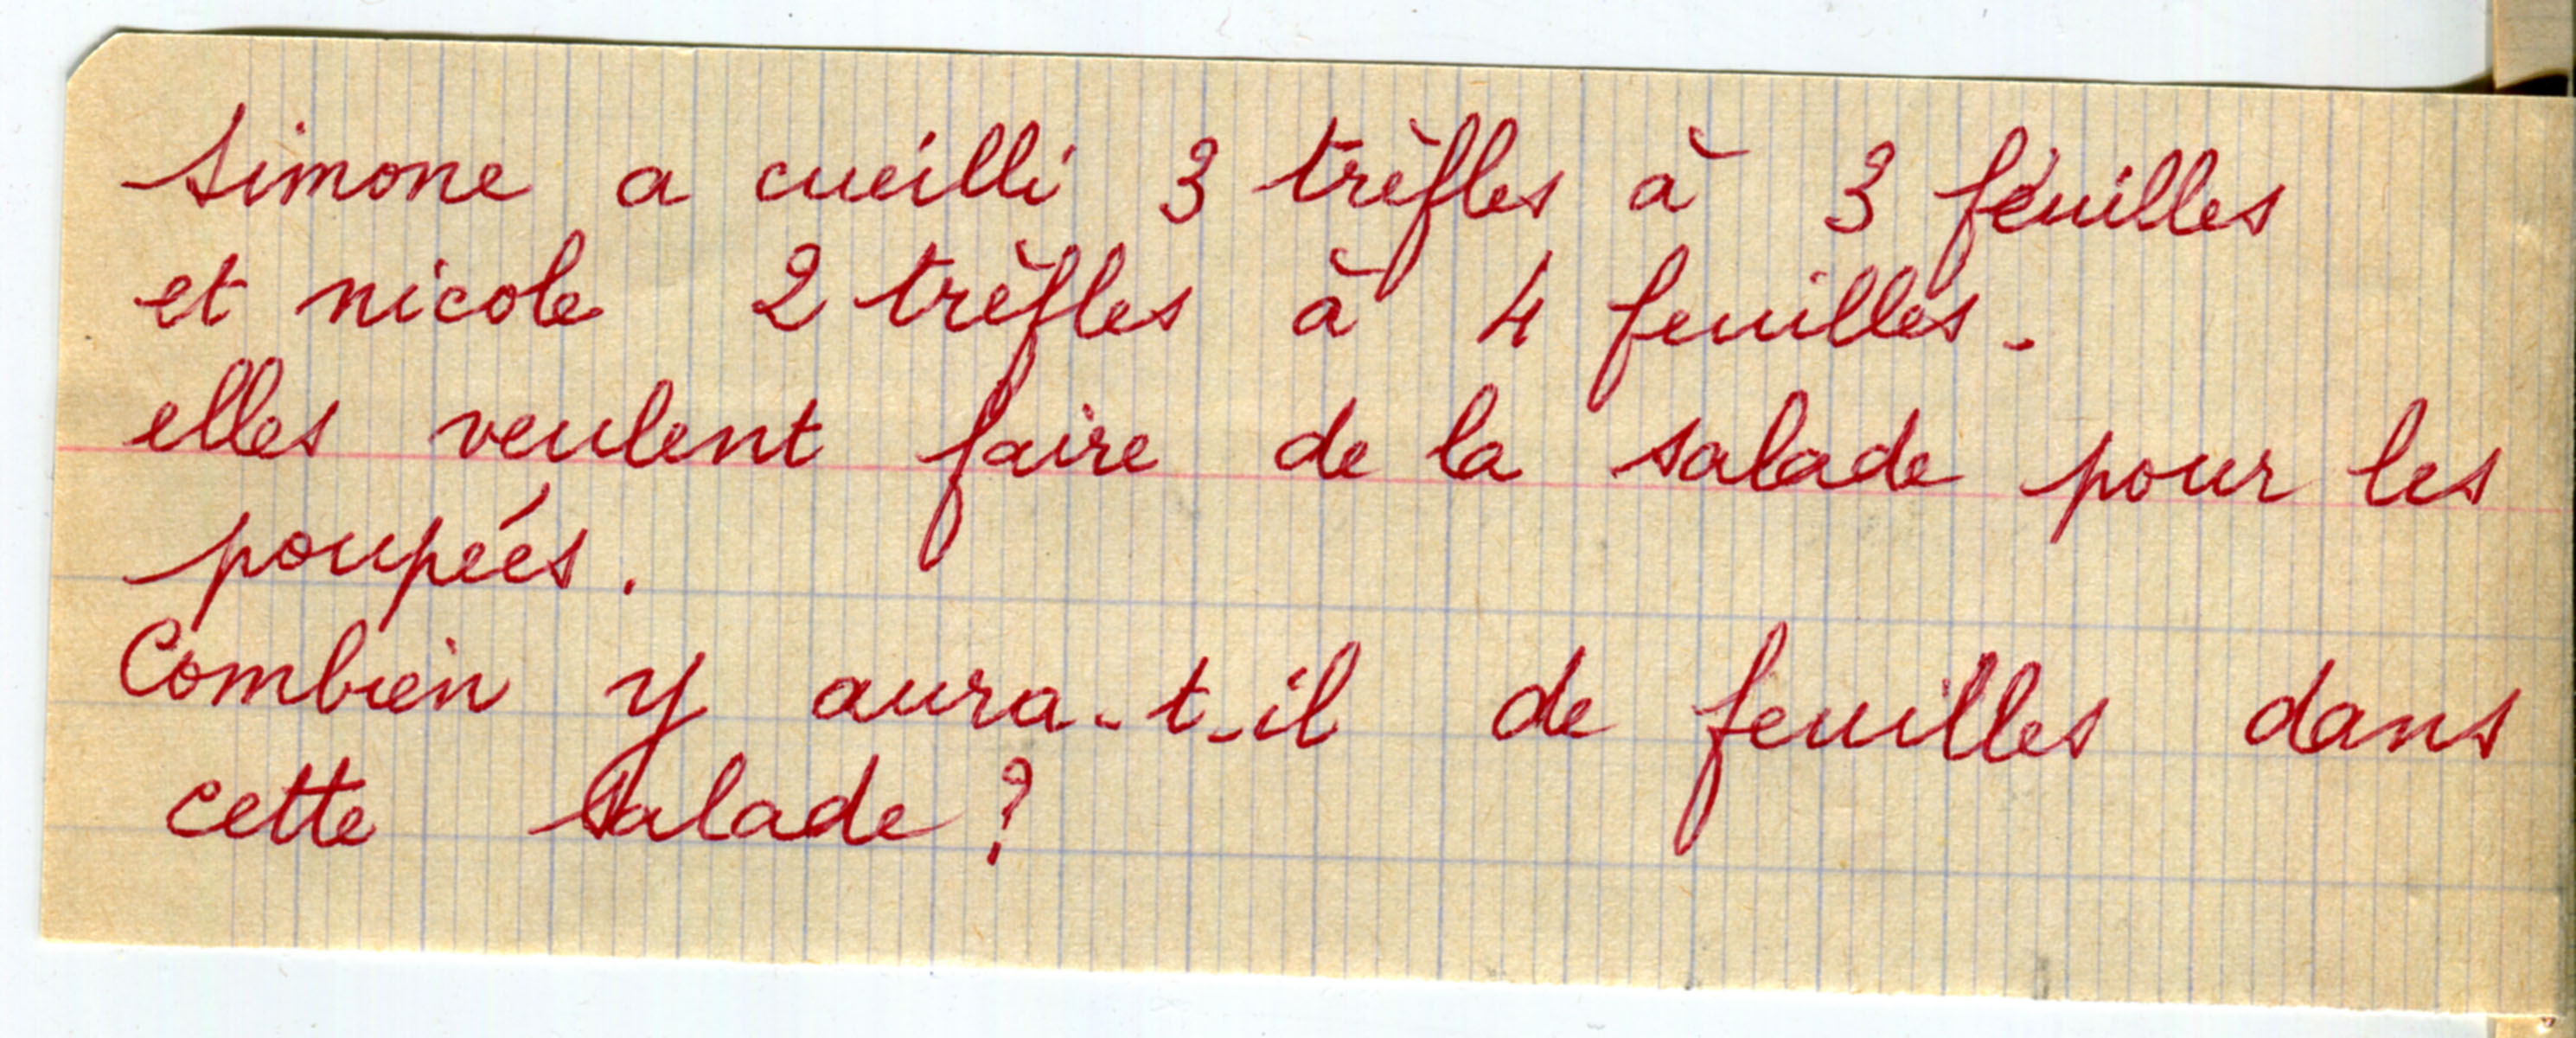 simone a cueilli 3 trèfles à 3 feuilles
et nicole 2 trèfles à 4 feuilles.
elles veulent faire de la salade pour les
poupées.
Combien y aura-t-il de feuilles dans
cette salade ?